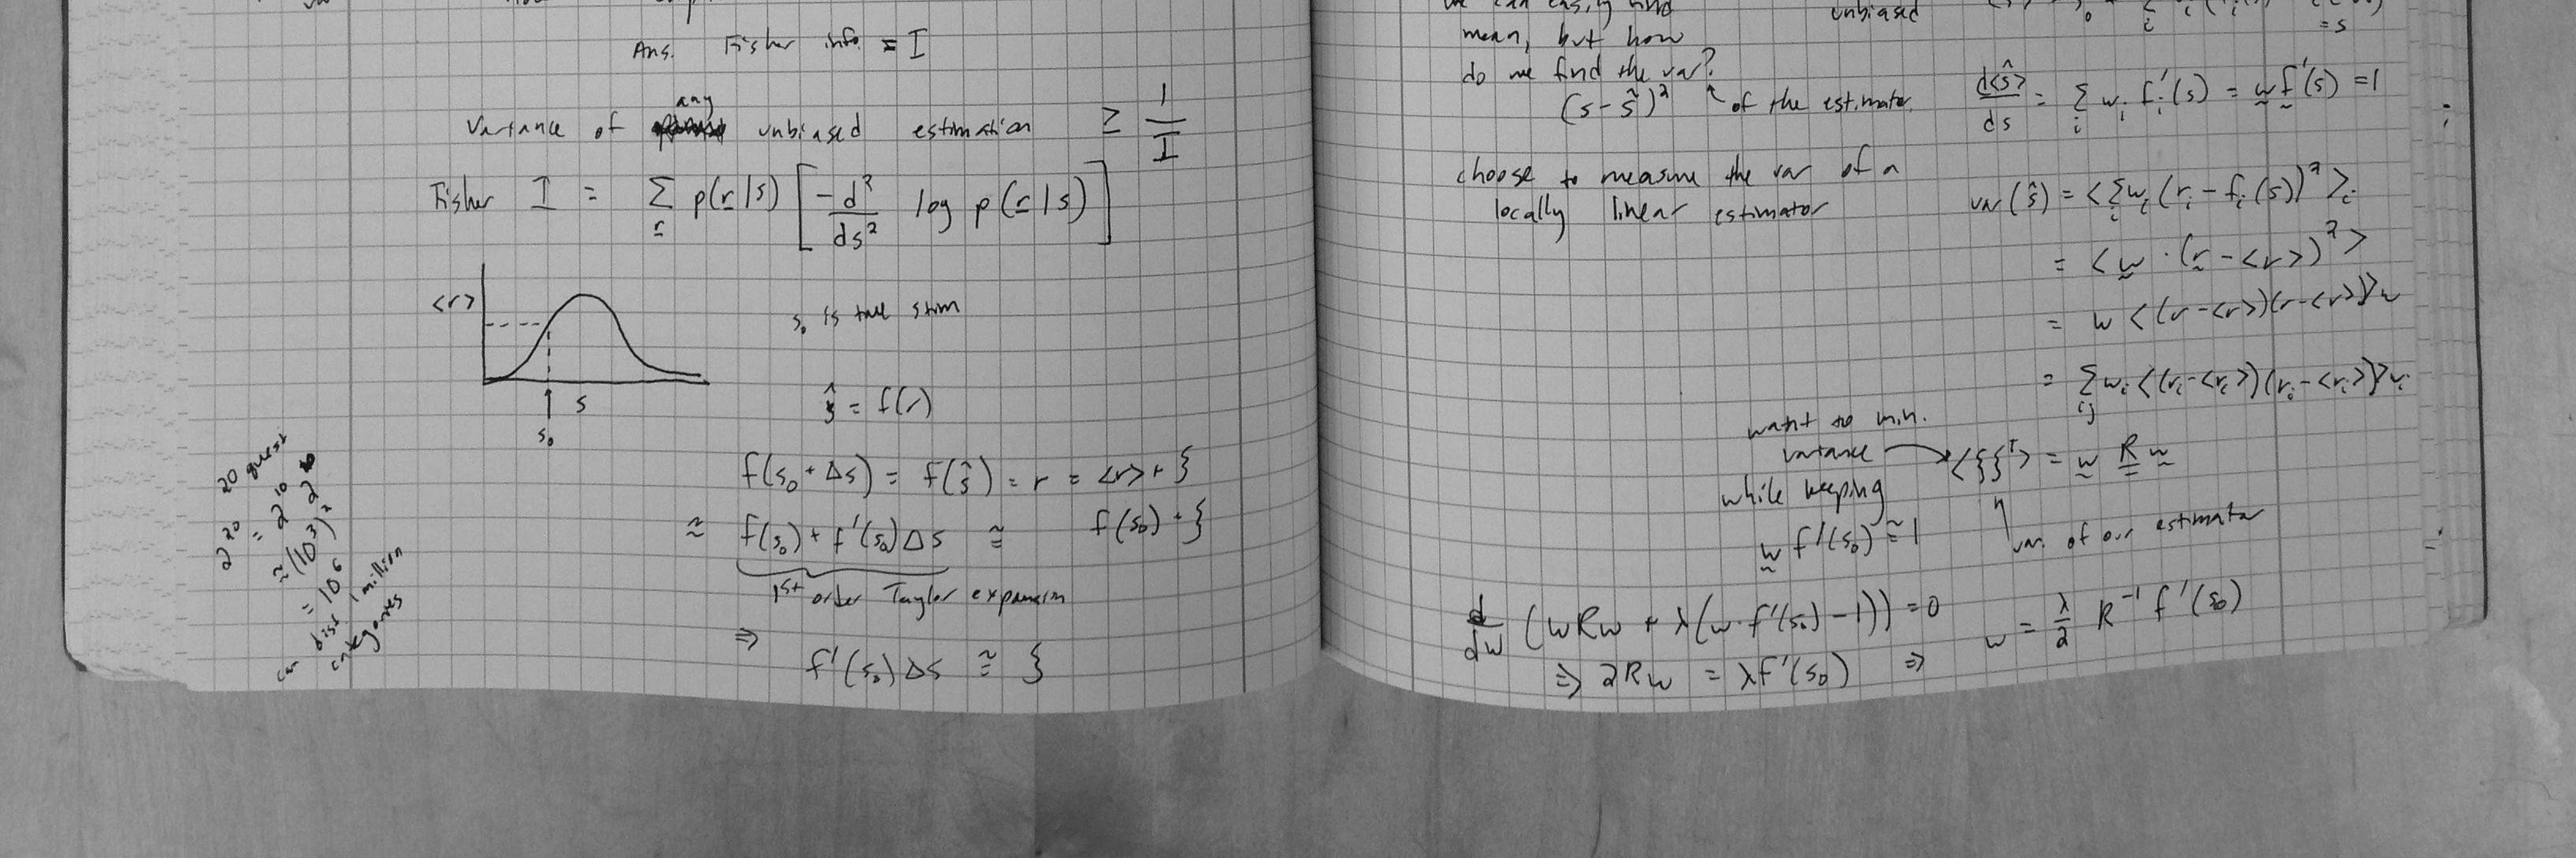 Ans. Fisher info = I
Variance of any unbiased estimation ≥ 1/I
Fisher I = Σ_r p(r|s) [ -d²/ds² log p(r|s) ]
<r>
s₀ is true stim
s
s₀
ŝ = f(r)
f(s₀ + Δs) = f(ŝ) = r = <r> + ξ
≈ f(s₀) + f'(s₀)Δs ≅ f(s₀) + ξ
1st order Taylor expansion
⇒ f'(s₀)Δs ≅ ξ
20 quest
2^20 = 2^10 2^10
≈ (10³)²
= 10⁶
can diss 1 million
categories
we can easily find
mean, but how
do we find the var?
(s - ŝ)² of the estimator
choose to measure the var of a
locally linear estimator
unbiased
= s
d<ŝ>/ds = Σ_i w_i f_i'(s) = w f'(s) = 1
var(ŝ) = <Σ_i w_i (r_i - f_i(s))²>
= <w · (r - <r>)²>
= w <(r - <r>)(r - <r>)> w
= Σ_ij w_i <(r_i - <r_i>)(r_j - <r_j>)> w_j
want to min.
variance
<ξξᵀ> = w R w
while keeping
w f'(s₀) ≅ 1
var. of our estimator
d/dw (wRw + λ(w · f'(s₀) - 1)) = 0
⇒ 2Rw = λf'(s₀) ⇒ w = λ/2 R⁻¹ f'(s₀)